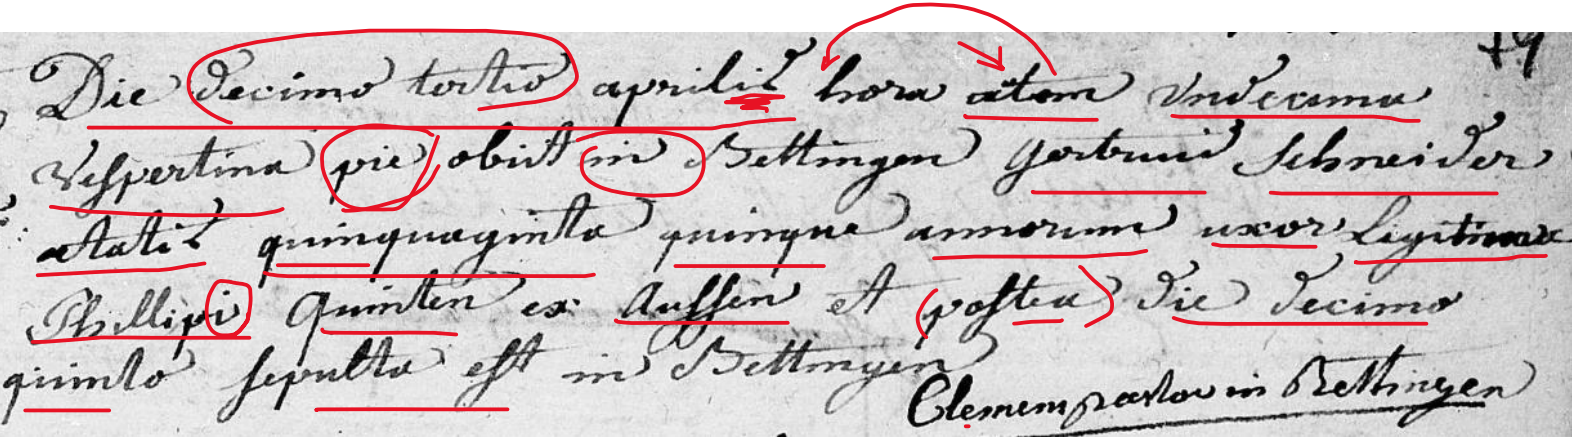 79
Die decimo tertio aprilis hora etem undecima
vespertina pie obiit in Bettingen Gertruid Schneider
etatis quinquaginta quinque annorum uxor Legitima
Phillipi Quinten ex Aussen et postea die decimo
quinto sepulta est in Bettingen
Clemens pastor in Bettingen